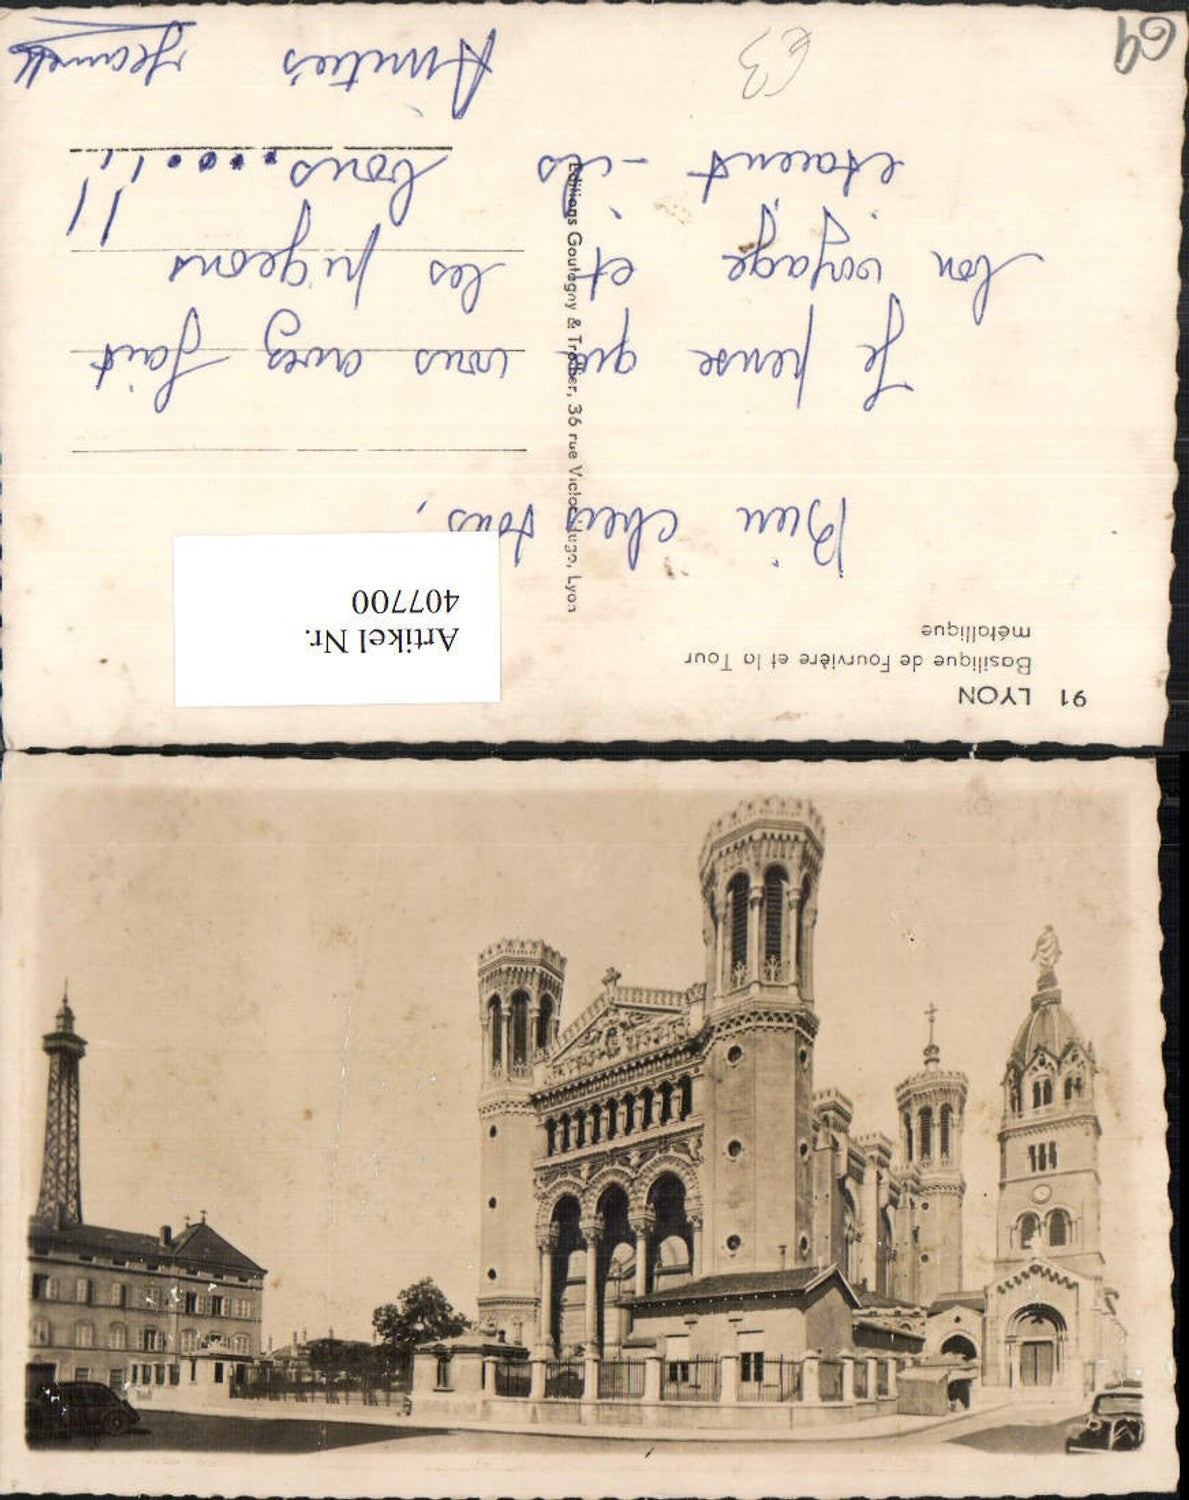 91 LYON
Basilique de Fourvière et la Tour
métallique
Artikel Nr.
407700
Bien chers tous,
Je pense que vous avez fait
bon voyage et les pigeons
étaient-ils bons....!!
Amitiés
Editions Goutagny & Trollier, 36 rue Victor Hugo, Lyon
69
€3